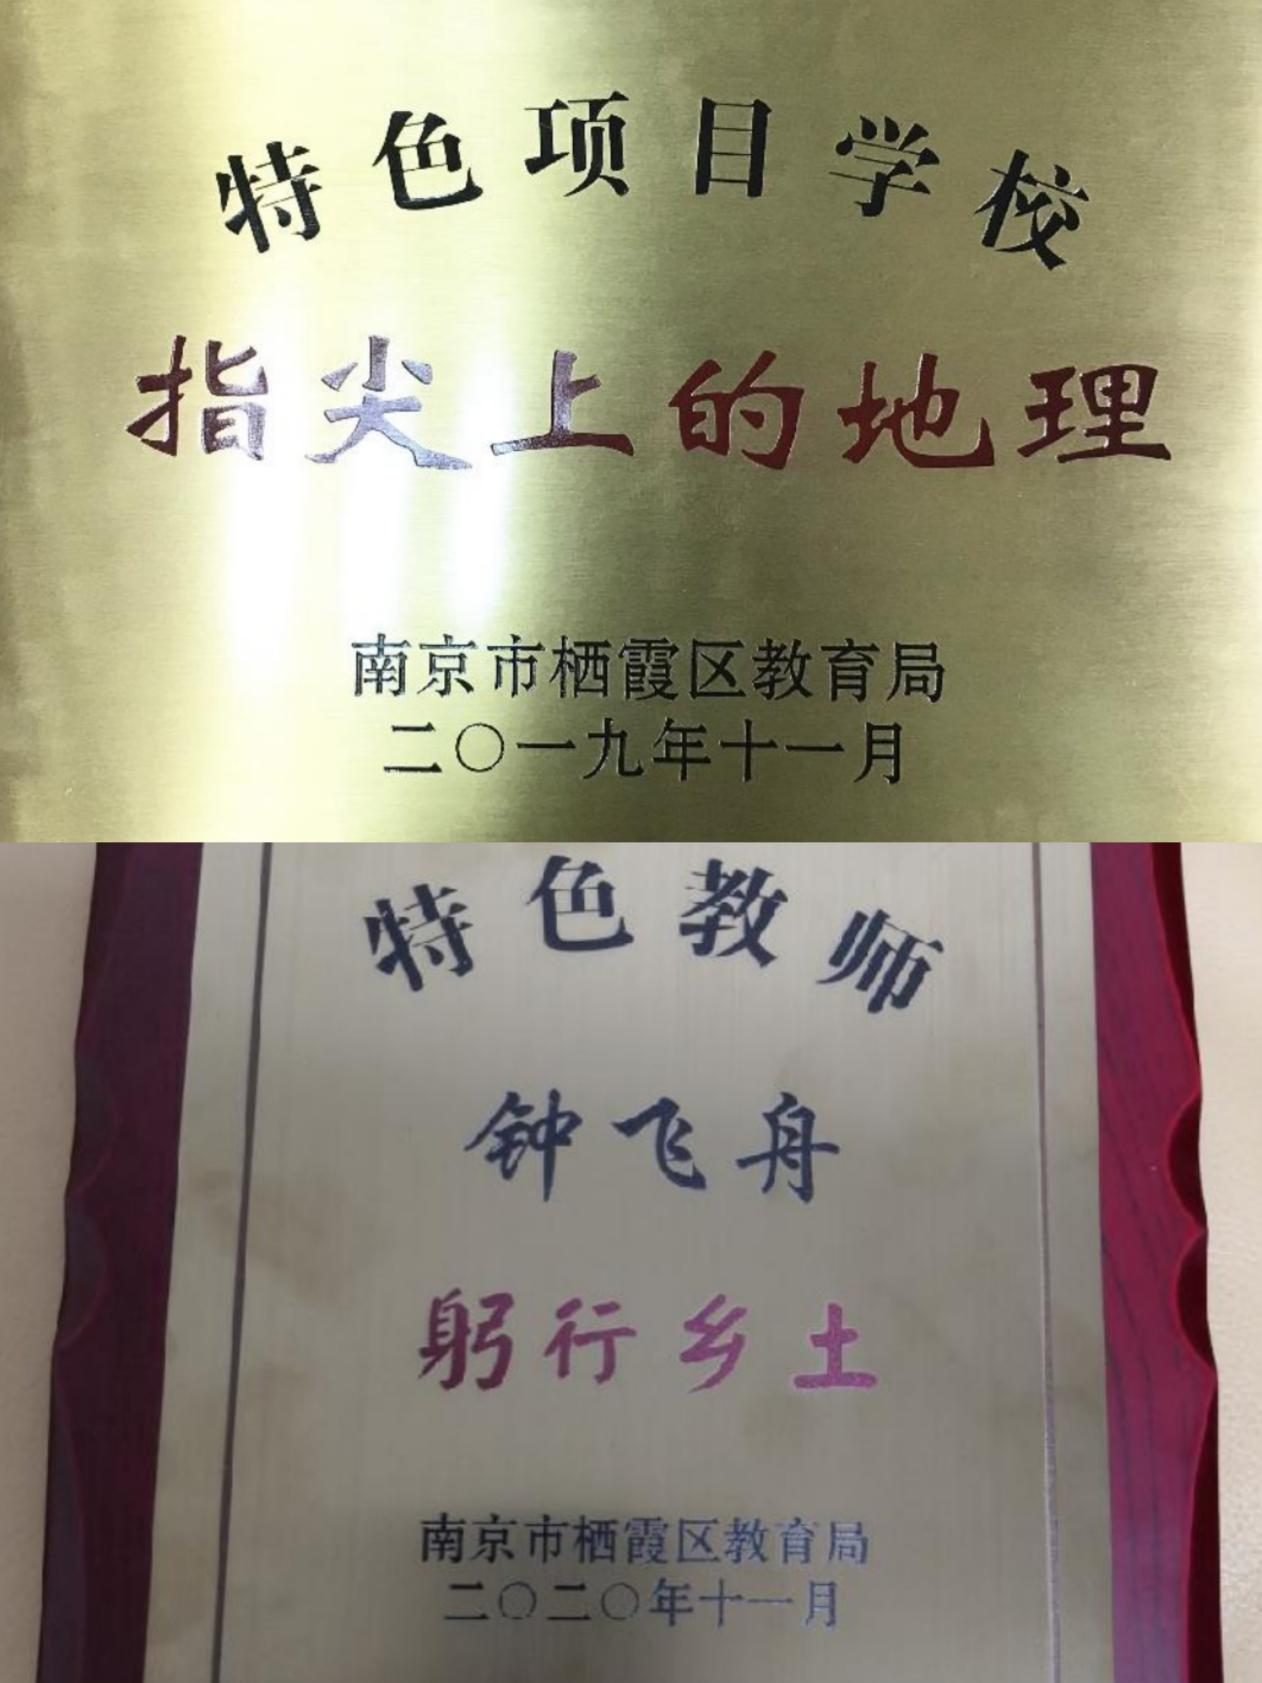 特色项目学校
指尖上的地理
南京市栖霞区教育局
二〇一九年十一月
特色教师
钟飞舟
躬行乡土
南京市栖霞区教育局
二〇二〇年十一月